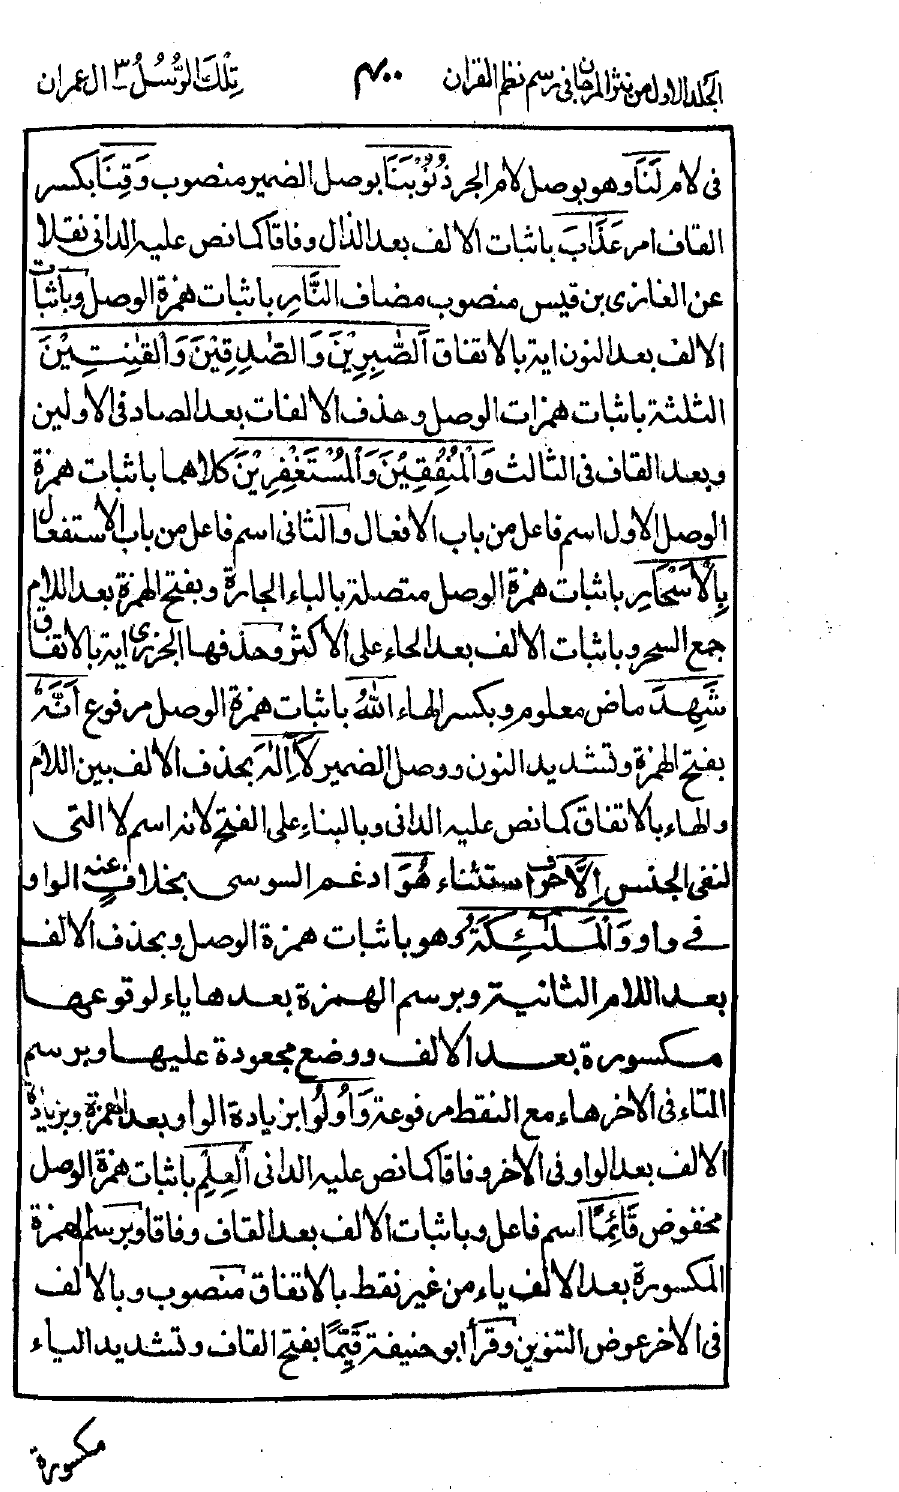 الجلد الاول من نثر المرجان في رسم نظم القران ۴۰۰ تِلْكَ الرُّسُلُ ۳ ال عمران
فى لام لَنَا وهو بوصل لام الجر ذُنُوْبَنَا بوصل الضمير منصوب وَقِنَا بكسر
القاف امر عَذَابَ باثبات الالف بعد الذال وفاقا كما نص عليه الدانى نقلا
عن الغازى بن قيس منصوب مضاف النَّارِ باثبات همزة الوصل وباثبات
الالف بعد النون اية بالاتفاق اَلصّٰبِرِيْنَ وَالصّٰدِقِيْنَ وَالْقٰنِتِيْنَ
الثلثة باثبات همزات الوصل وحذف الالفات بعد الصاد فى الاولين
وبعد القاف فى الثالث وَالْمُنْفِقِيْنَ وَالْمُسْتَغْفِرِيْنَ كلاهما باثبات همزة
الوصل الاول اسم فاعل من باب الافعال والثانى اسم فاعل من باب الاستفعال
بِالْاَسْحَارِ باثبات همزة الوصل متصلة بالباء الجارة وبفتح الهمزة بعد اللام
جمع السحر وباثبات الالف بعد الحاء على الاكثر وحذفها الجزرى اية بالاتفاق
شَهِدَ ماض معلوم وبكسر الهاء اللّٰهُ باثبات همزة الوصل مرفوع اَنَّهٗ
بفتح الهمزة وتشديد النون ووصل الضمير لَآ اِلٰهَ بحذف الالف بين اللام
والهاء بالاتفاق كما نص عليه الدانى وبالبناء على الفتح لانه اسم لا التى
لنفى الجنس اِلَّا حرف استثناء هُوَ ادغم السوسى بخلاف عنه الواو
فى واو وَالْمَلٰٓئِكَةُ وهو باثبات همزة الوصل وبحذف الالف
بعد اللام الثانية وبرسم الهمزة بعدها ياء لوقوعها
مكسورة بعد الالف ووضع مجعودة عليها وبرسم
التاء فى الاخر هاء مع النقط مرفوعة وَاُولُوا بزيادة الواو بعد الهمزة وبزيادة
الالف بعد الواو فى الاخر وفاقا كما نص عليه الدانى الْعِلْمِ باثبات همزة الوصل
مخفوض قَآئِمًا اسم فاعل وباثبات الالف بعد القاف وفاقا وبرسم الهمزة
المكسورة بعد الالف ياء من غير نقط بالاتفاق منصوب وبالالف
فى الاخر عوض التنوين وقرأ ابو حنيفة قَيِّمًا بفتح القاف وتشديد الياء
مكسورة